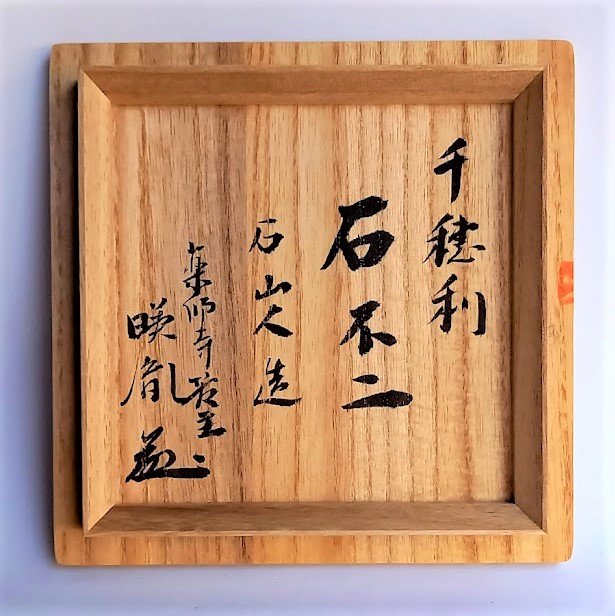 千穂利
石不二
石山人造
薬師寺管主
暎胤